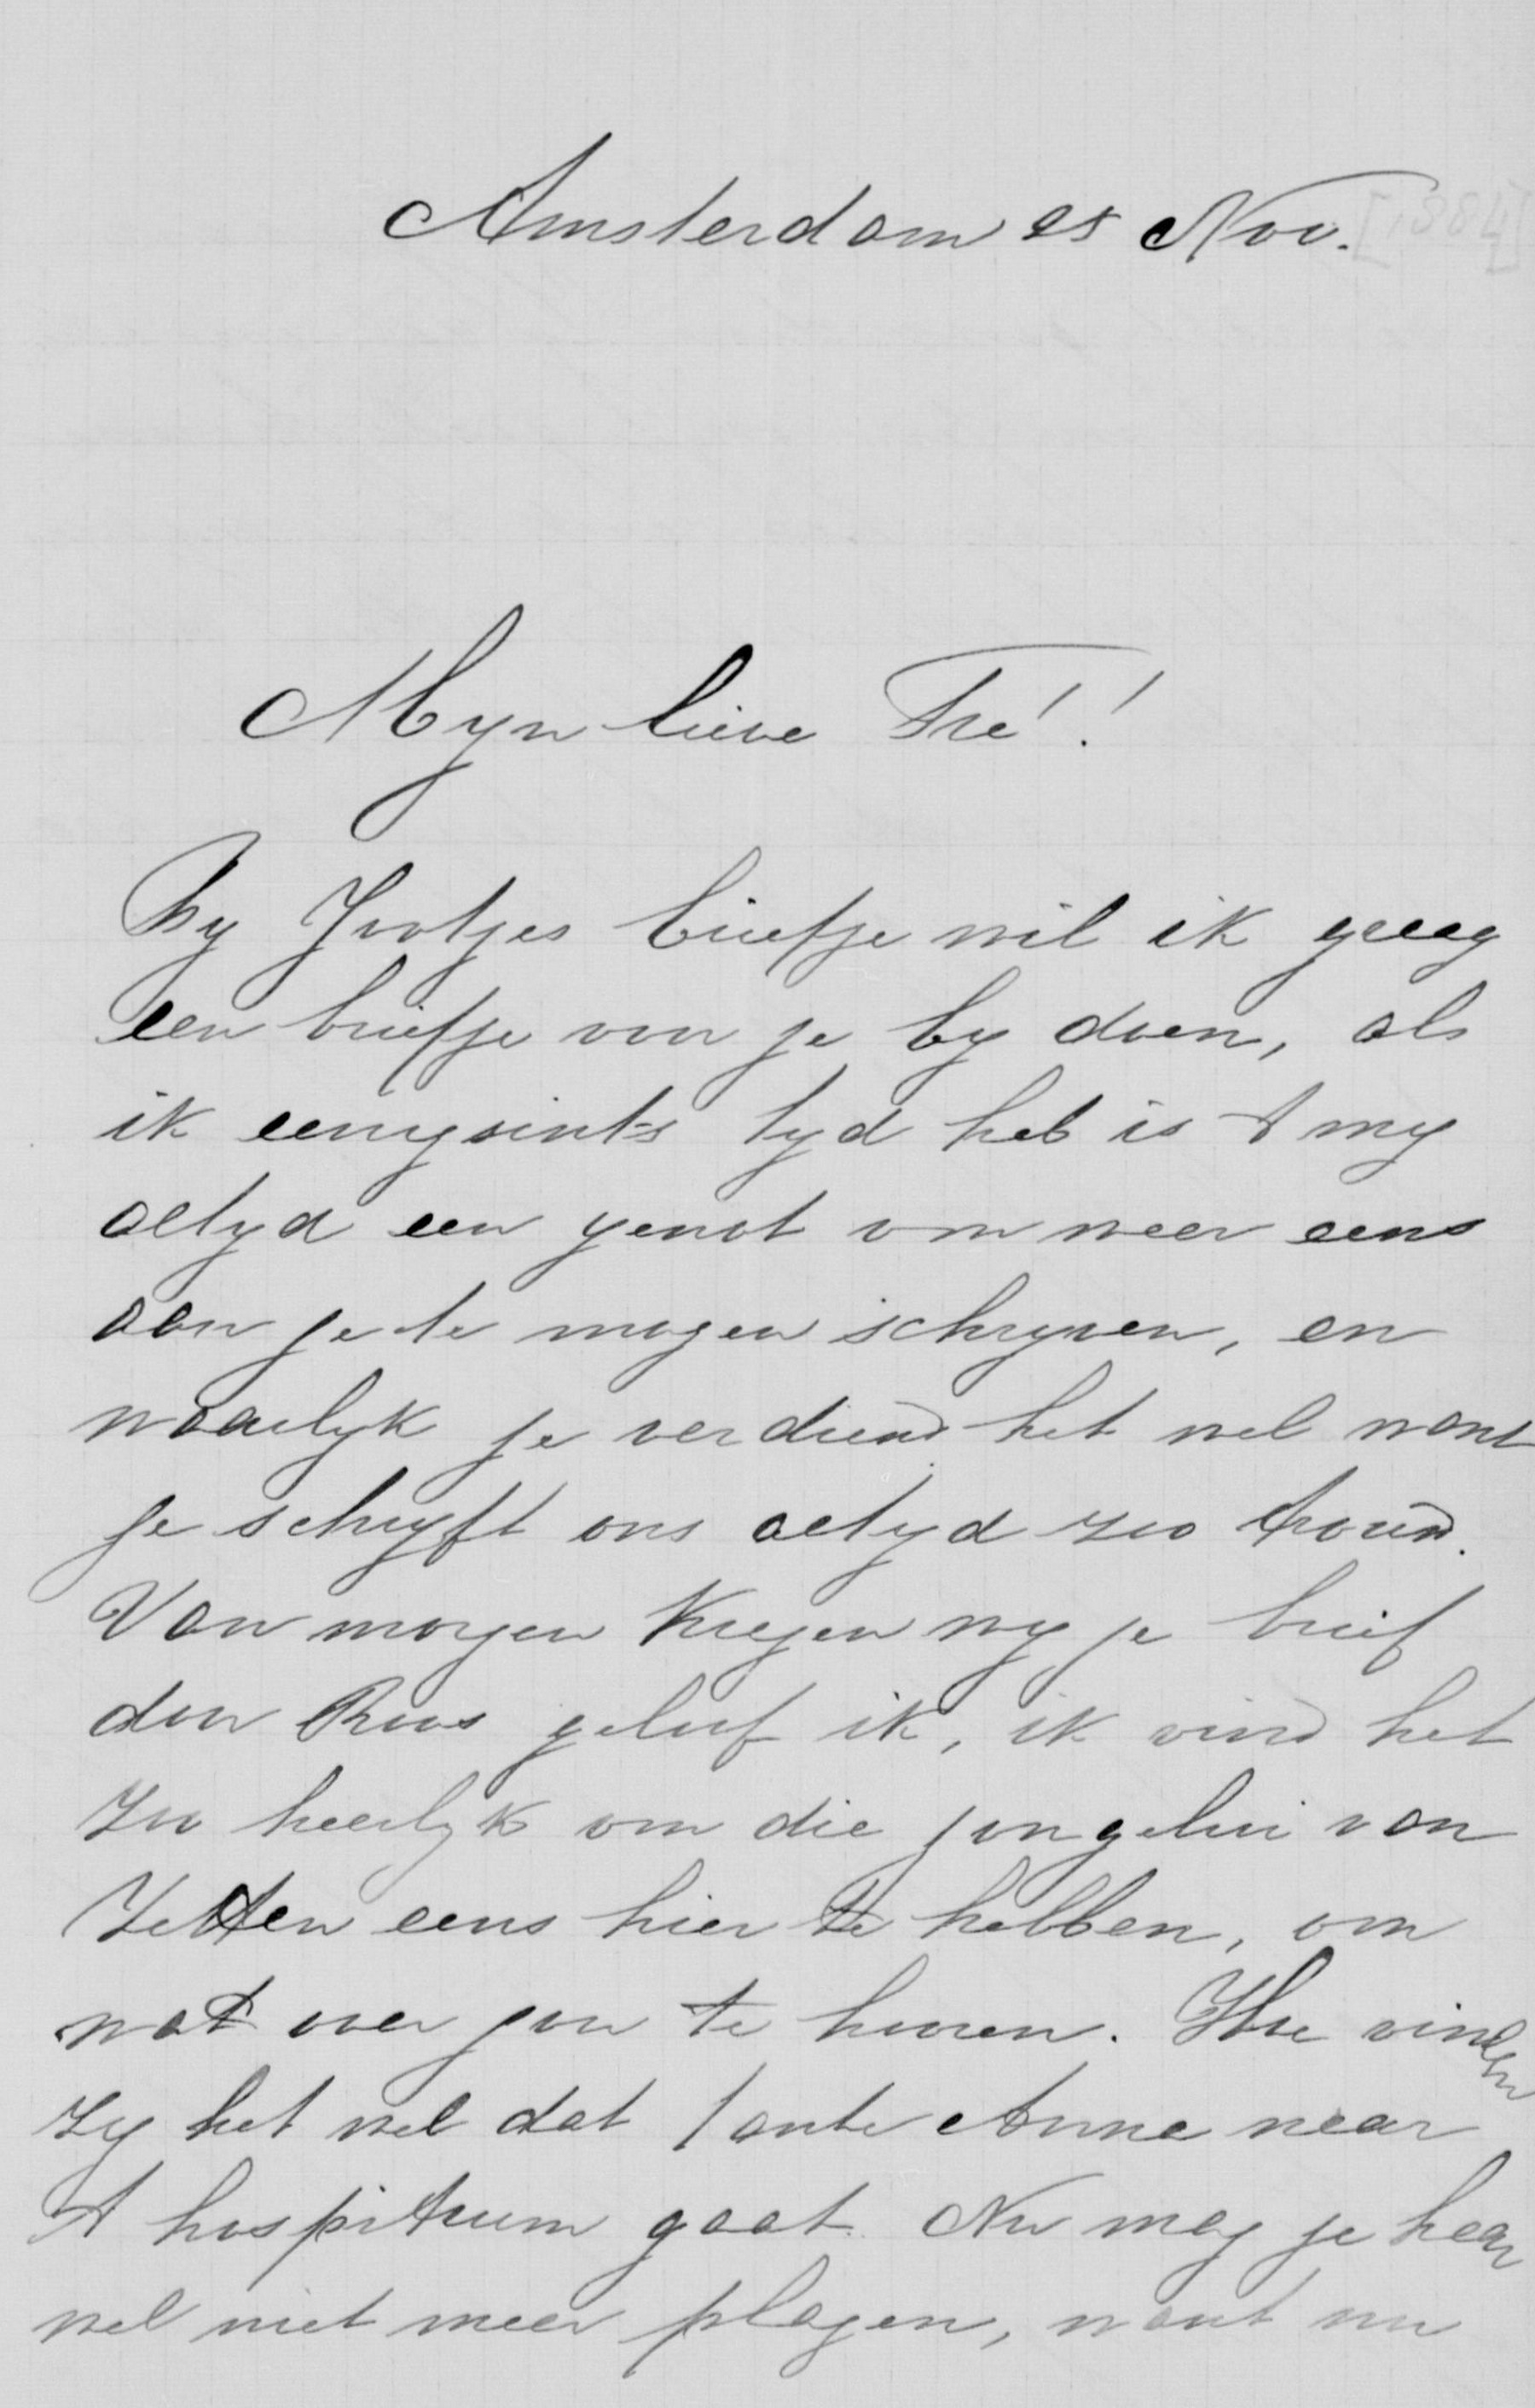 Amsterdam 25 Nov. [1884]
Myn lieve Fré!
By Jootjes briefje wil ik graag
een briefje voor je by doen, als
ik eenigsints tyd heb is 't my
altyd een genot om weer eens
aan je te mogen schryven, en
waarlyk je verdiend het wel want
je schryft ons altyd zoo trouw.
Van morgen kregen wy je brief
door Roos geloof ik, ik vind het
zoo heerlyk om die jongelui van
Zetten eens hier te hebben, om
wat over jou te hooren. Hoe vinden
zy het wel dat tante Anna naar
't hospitium gaat. Nu mag je haar
wel niet meer plagen, want nu